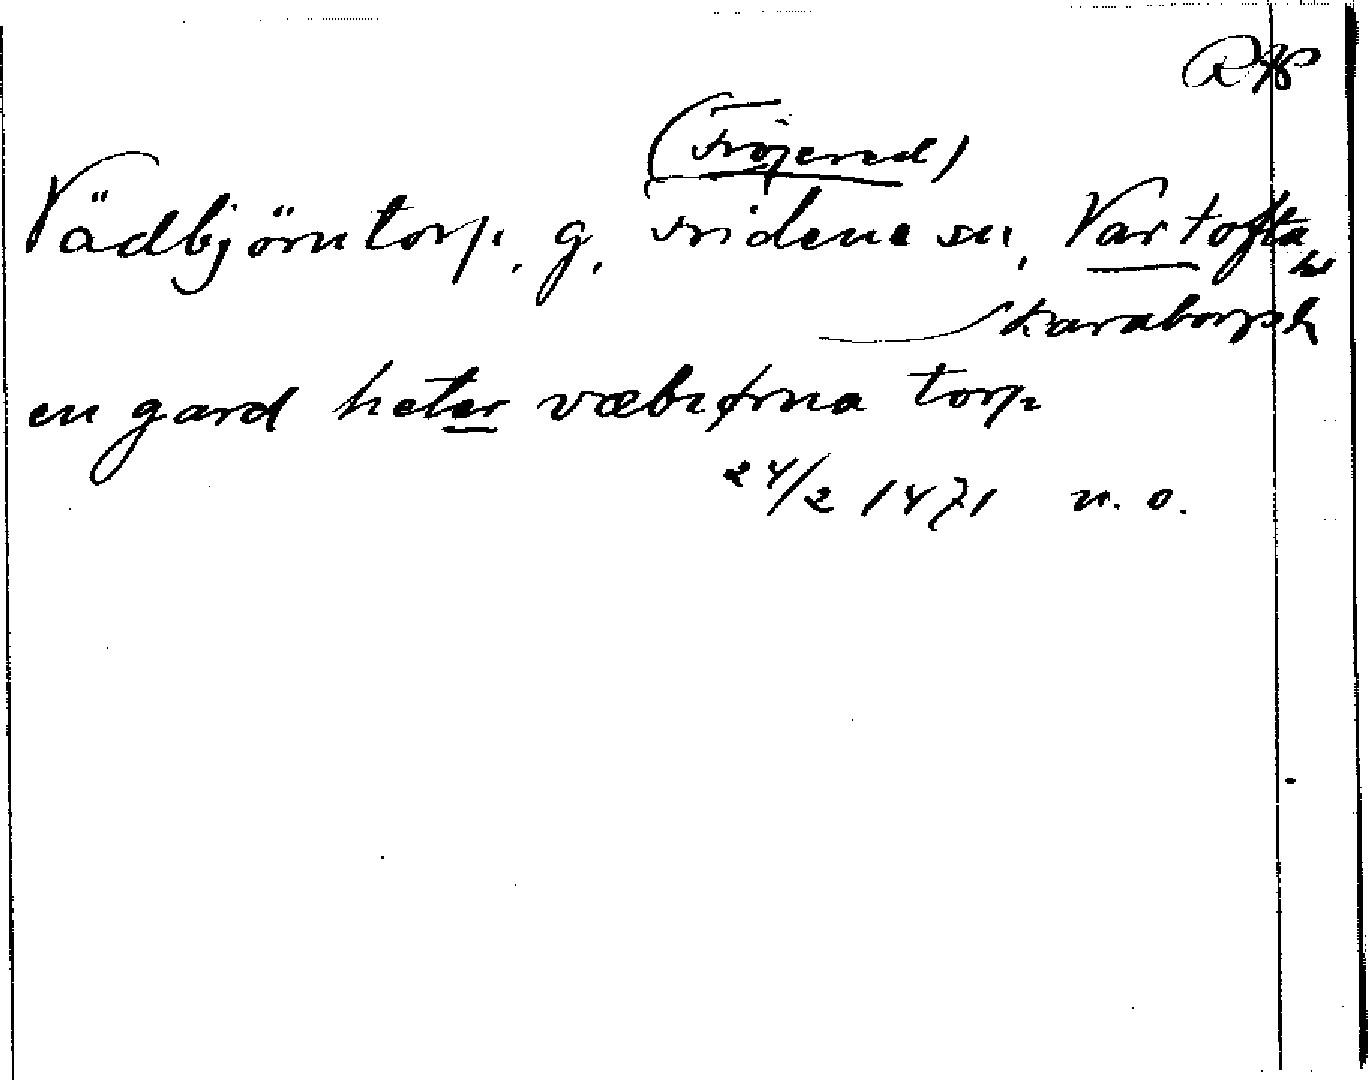 RAP
(Fröjered)
Vädbjörntorp, g, Fridene sn, Vartofta
hd
Skaraborgs l.
en gard heter væbiørna torp
24/2 1471 n. o.